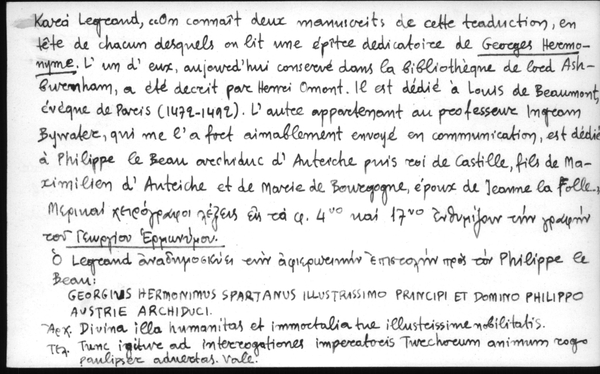 Κατά Legrand, «On connaît deux manuscrits de cette traduction, en
tête de chacun desquels on lit une épître dedicatoire de Georges Hermo-
nyme. L'un d'eux, aujourd'hui conservé dans la bibliothèque de lord Ash-
burnham, a été decrit par Henri Omont. Il est dédié à Louis de Beaumont,
évêque de Paris (1472-1492). L'autre appartenant au professeur Ingram
Bywater, qui me l'a fort aimablement envoyé en communication, est dédié
à Philippe le Beau archiduc d'Autriche puis roi de Castille, fils de Ma-
ximilien d'Autriche et de Marie de Bourgogne, époux de Jeanne la Folle.»
Μερικαί χειρόγραφοι λέξεις εις τα φ. 4νο και 17νο ενθυμίζουν την γραφήν
του Γεωργίου Ερμωνύμου.
Ο Legrand αναδημοσιεύει την αφιερωτικήν επιστολήν προς τόν Philippe le
Beau:
GEORGIUS HERMONIMUS SPARTANUS ILLUSTRISSIMO PRINCIPI ET DOMINO PHILIPPO
AUSTRIE ARCHIDUCI.
Αρχ. Divina illa humanitas et immortalia tue illustrissime nobilitatis.
Τελ. Tunc igitur ad interrogationes imperatoris Turchorum animum rogo
paulisper advertas. Vale.